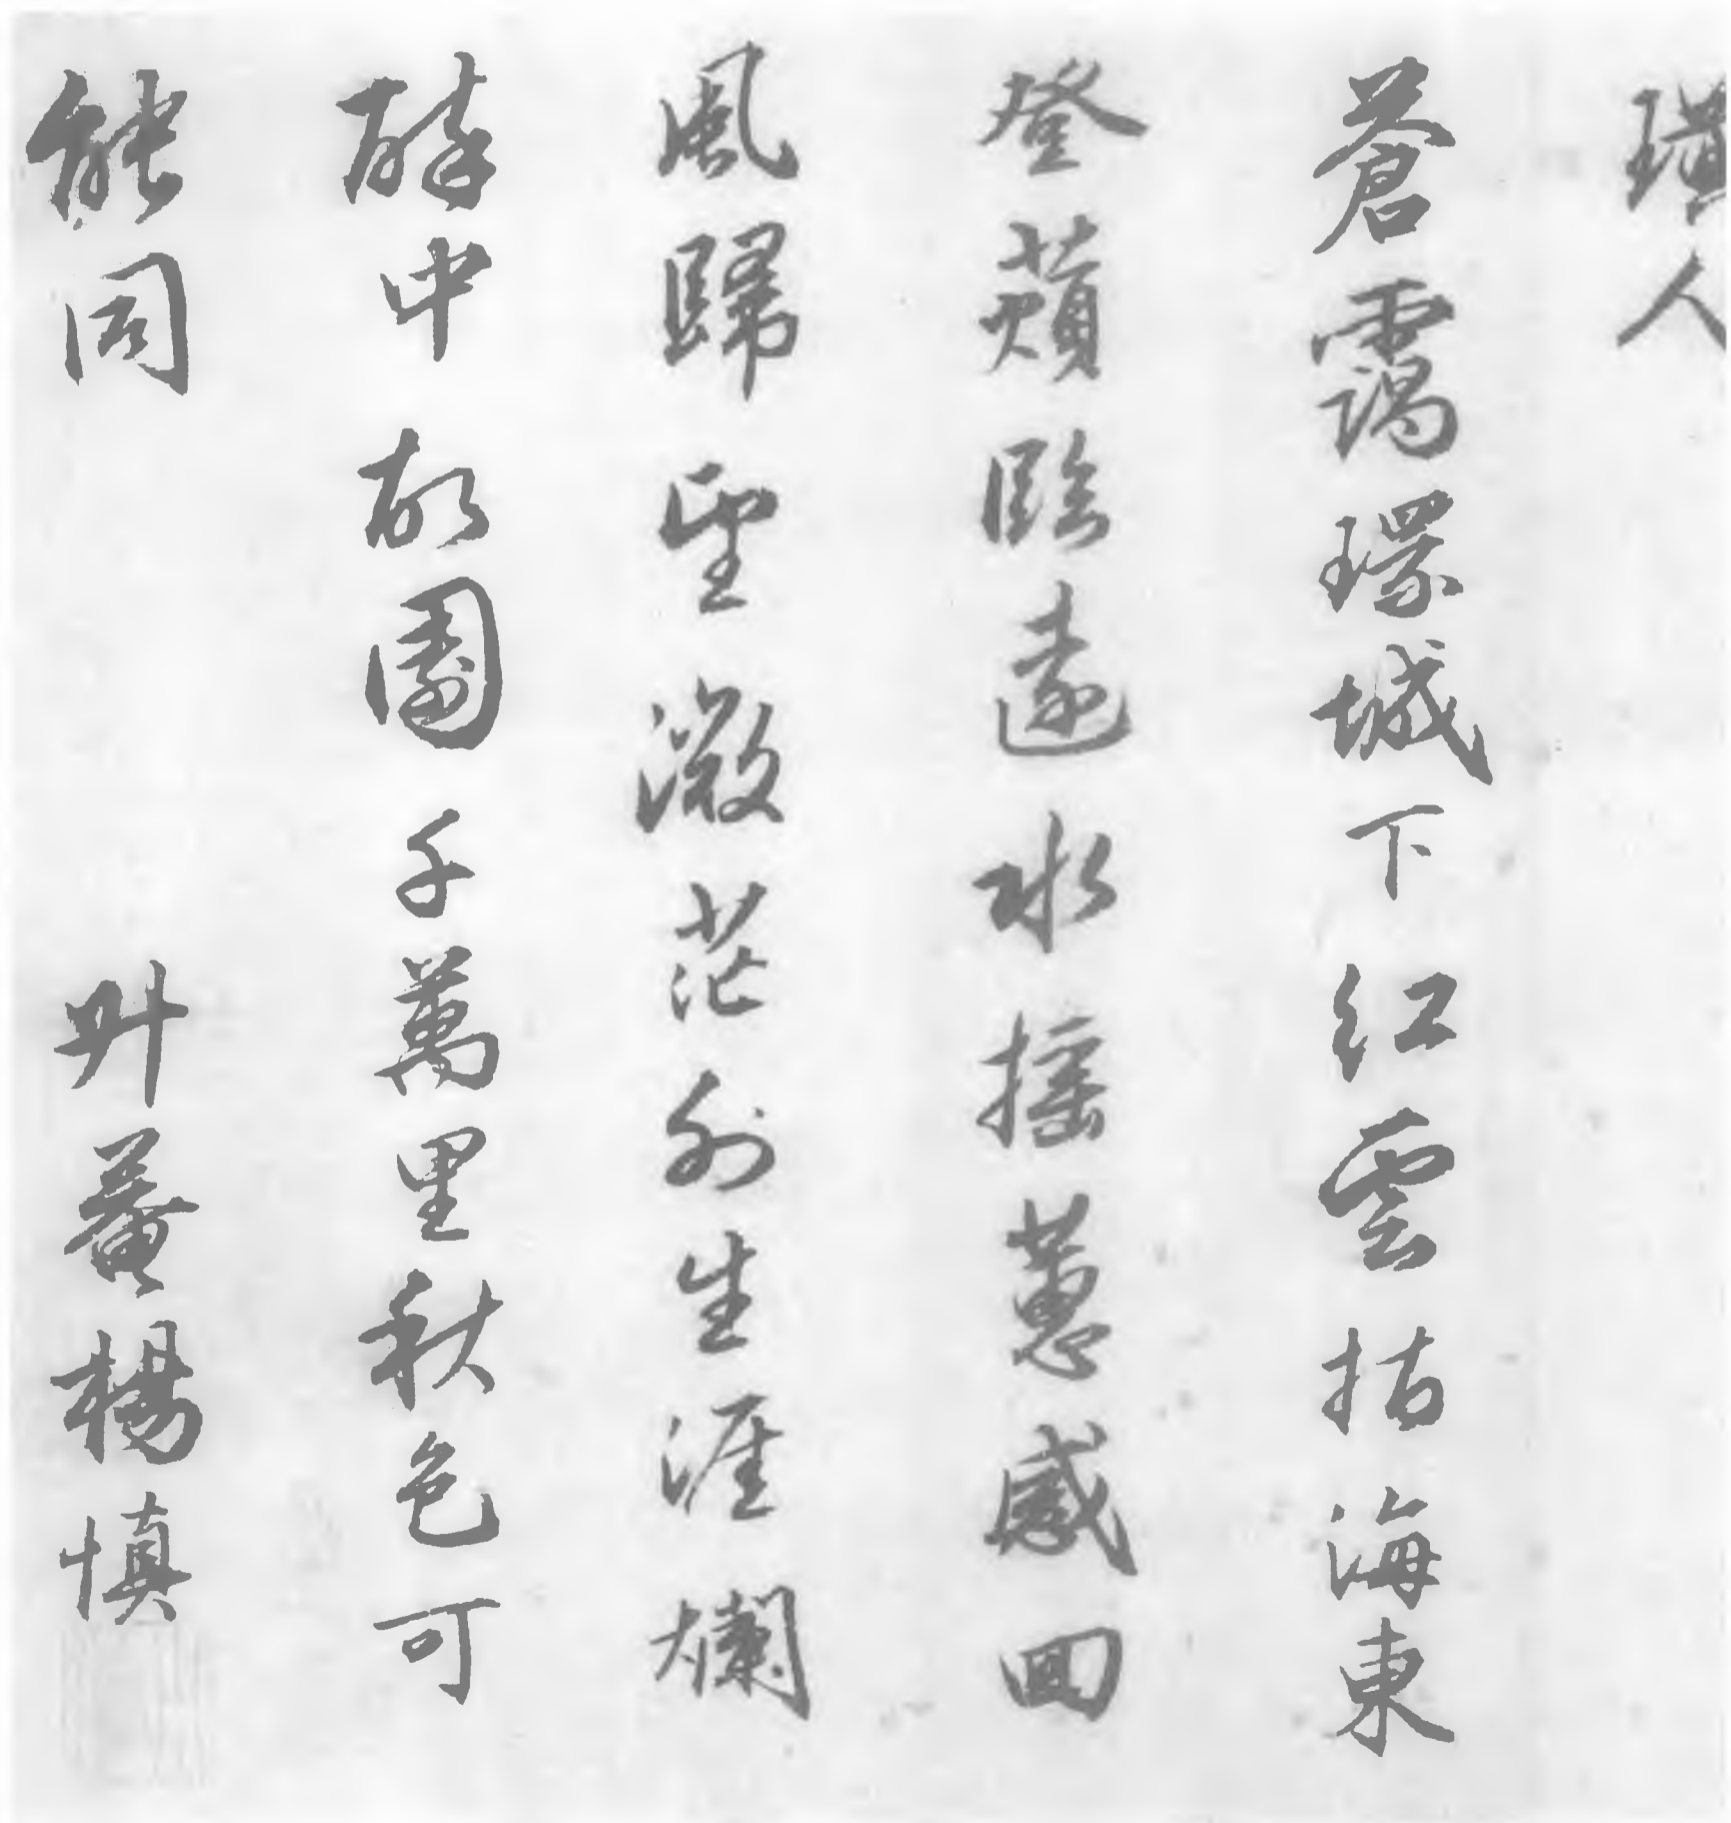 璜人
蒼靄環城下紅雲拈海東
登蘋臨遠水搖蕙感回
風歸望微茫外生涯爛
醉中故園千萬里秋色可
能同
升菴楊慎